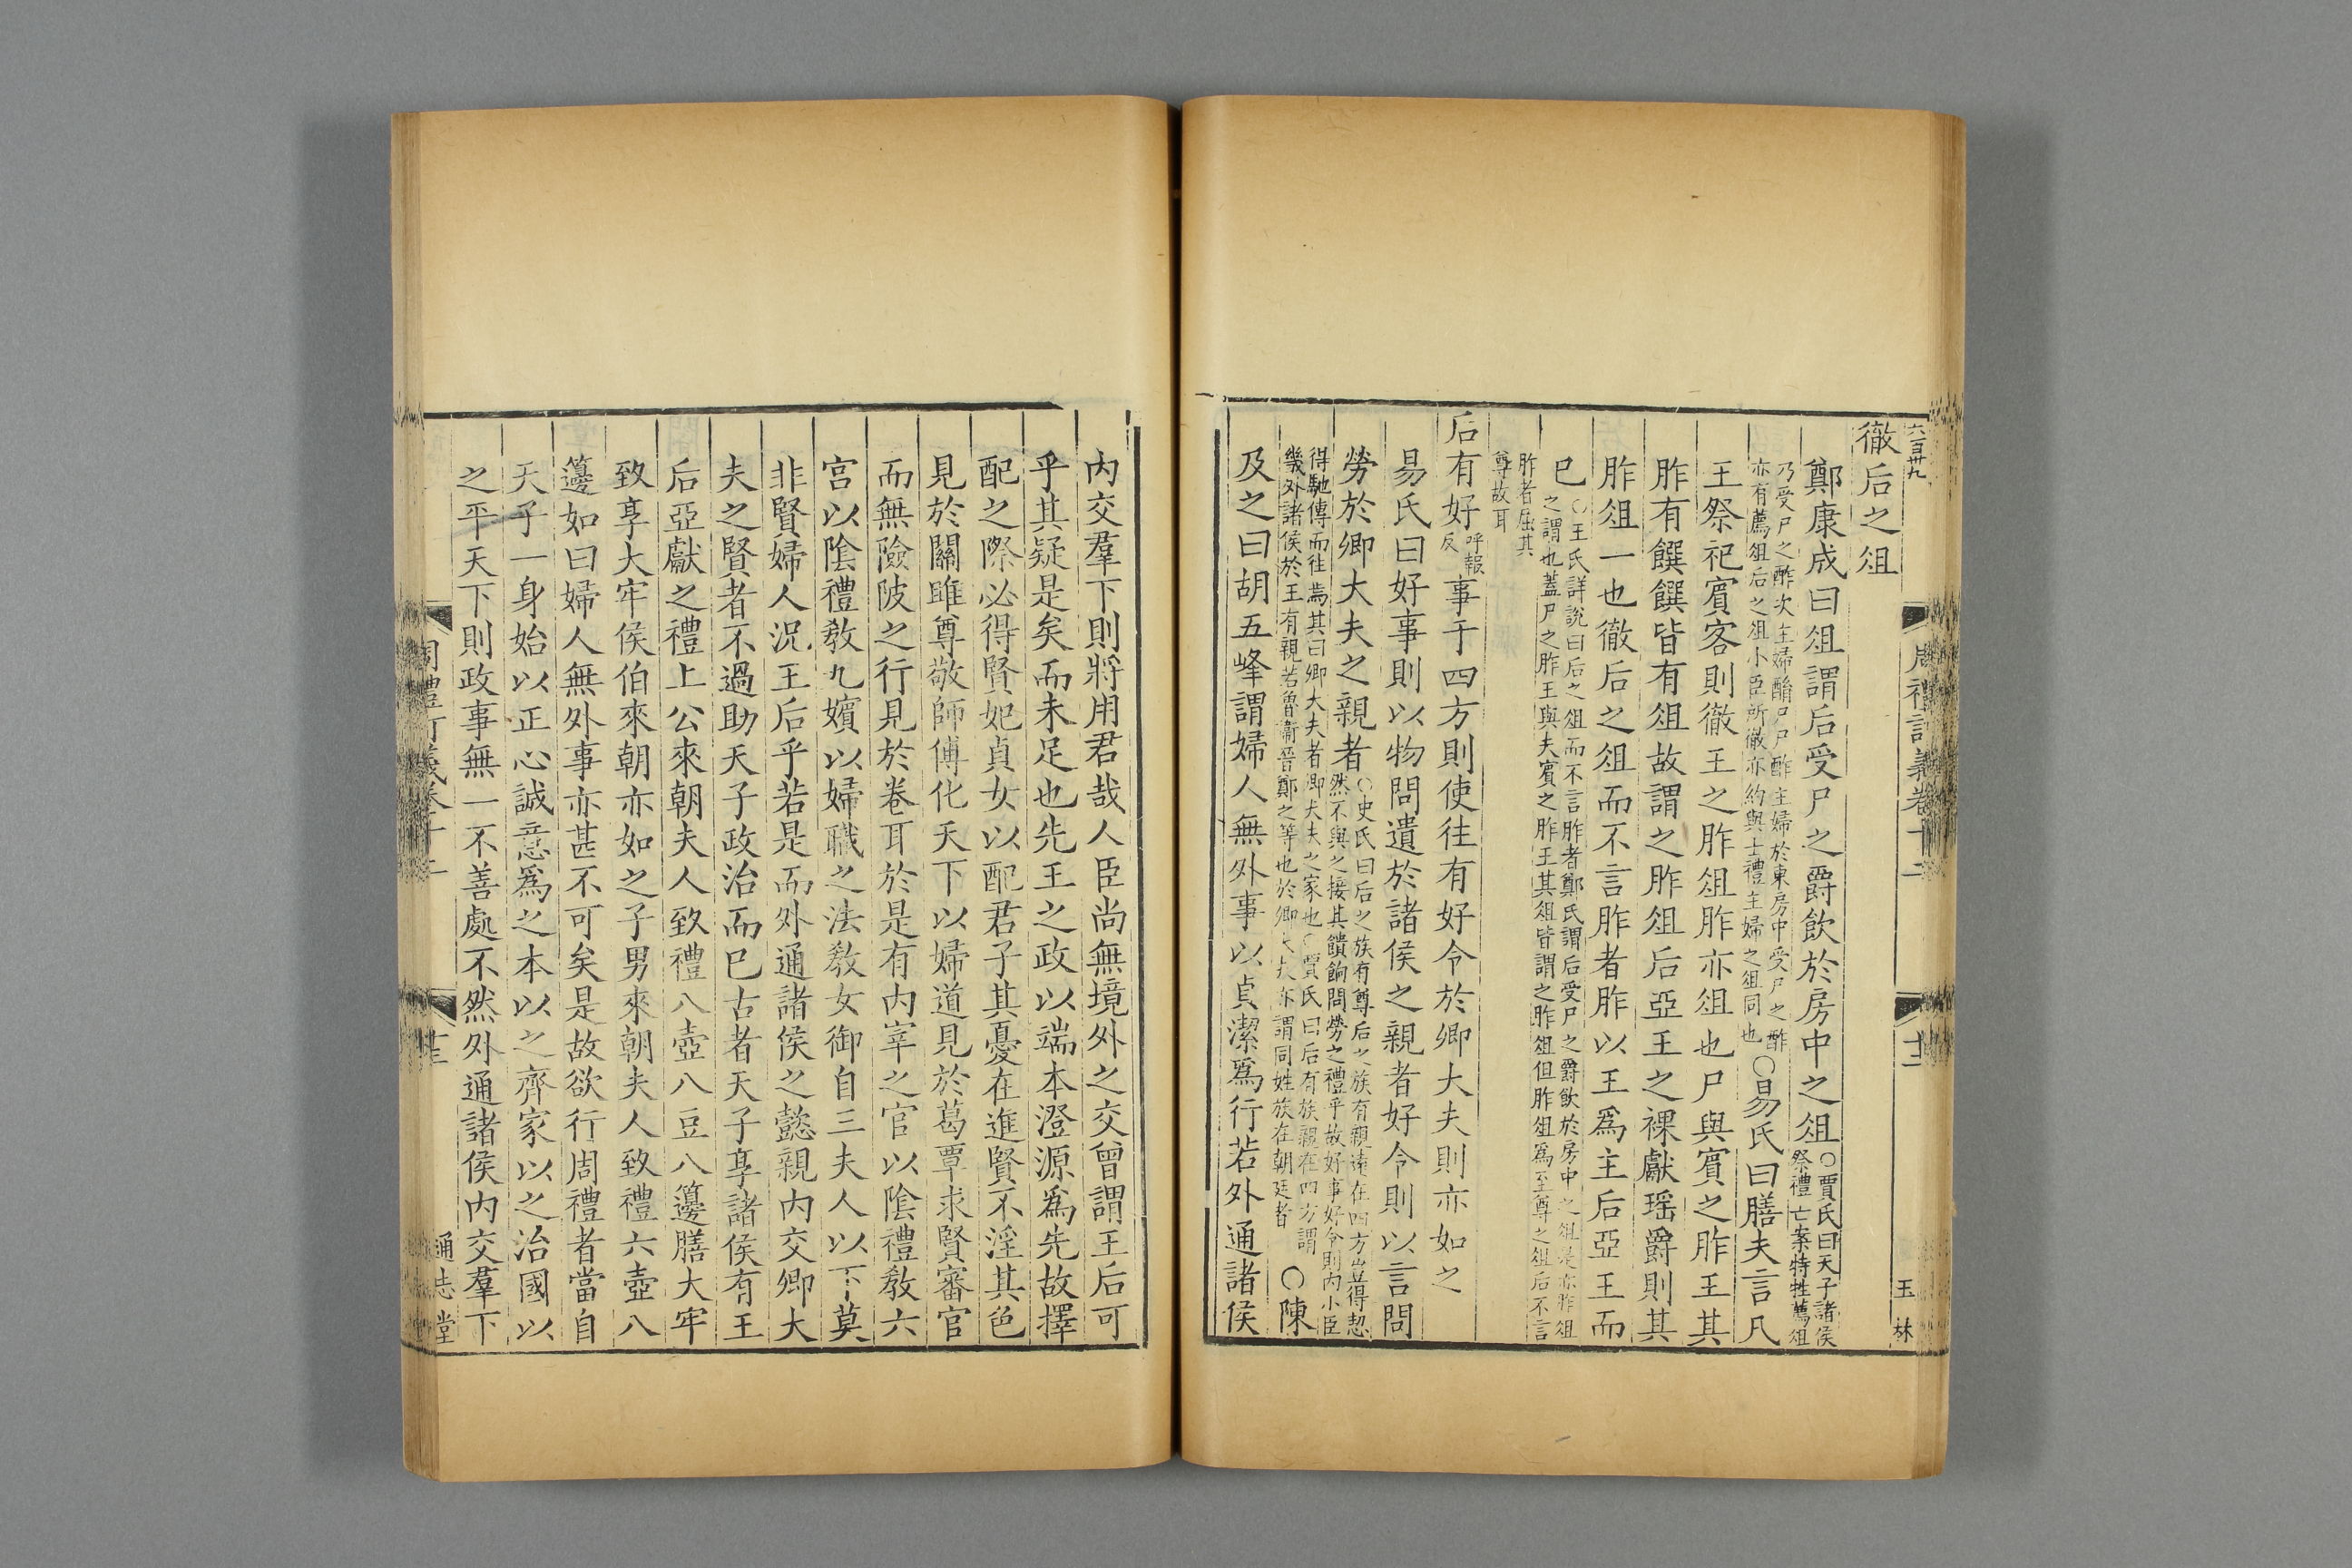 六百卅九
周禮訂義卷十二
十二
玉林
徹后之俎
鄭康成曰俎謂后受尸之爵飲於房中之俎○賈氏曰天子諸侯祭禮亡案特牲薦俎
乃受尸之酢次主婦酳尸尸酢主婦於東房中受尸之酢亦有薦俎后之俎小臣所徹亦約與士禮主婦之俎同也○易氏曰膳夫言凡
王祭祀賓客則徹王之胙俎胙亦俎也尸與賓之胙王其
胙有饌饌皆有俎故謂之胙俎后亞王之祼獻瑶爵則其
胙俎一也徹后之俎而不言胙者胙以王爲主后亞王而
巳○王氏詳說曰后之俎而不言胙者鄭氏謂后受尸之爵飲於房中之俎是亦胙俎之謂也蓋尸之胙王與夫賓之胙王其俎皆謂之胙俎但胙俎爲至尊之俎后不言
胙者屈其尊故耳
后有好呼報反事于四方則使往有好令於卿大夫則亦如之
易氏曰好事則以物問遺於諸侯之親者好令則以言問
勞於卿大夫之親者○史氏曰后之族有尊后之族有親遠在四方豈得恝然不與之接其饋餉問勞之禮乎故好事好令則內小臣
得馳傳而往焉其曰卿大夫者卿大夫之家也○賈氏曰后有族親在四方謂畿外諸侯於王有親若魯衞晉鄭之等也於卿大夫亦謂同姓族在朝廷者○陳
及之曰胡五峰謂婦人無外事以貞潔爲行若外通諸侯
內交羣下則將用君哉人臣尚無境外之交曾謂王后可
乎其疑是矣而未足也先王之政以端本澄源爲先故擇
配之際必得賢妃貞女以配君子其憂在進賢不淫其色
見於關雎尊敬師傅化天下以婦道見於葛覃求賢審官
而無險陂之行見於卷耳於是有內宰之官以陰禮敎六
宮以陰禮敎九嬪以婦職之法敎女御自三夫人以下莫
非賢婦人況王后乎若是而外通諸侯之懿親內交卿大
夫之賢者不過助天子政治而巳古者天子享諸侯有王
后亞獻之禮上公來朝夫人致禮八壺八豆八籩膳大牢
致享大牢侯伯來朝亦如之子男來朝夫人致禮六壺八
籩如曰婦人無外事亦甚不可矣是故欲行周禮者當自
天子一身始以正心誠意爲之本以之齊家以之治國以
之平天下則政事無一不善處不然外通諸侯內交羣下
周禮訂義卷十二
十三
通志堂